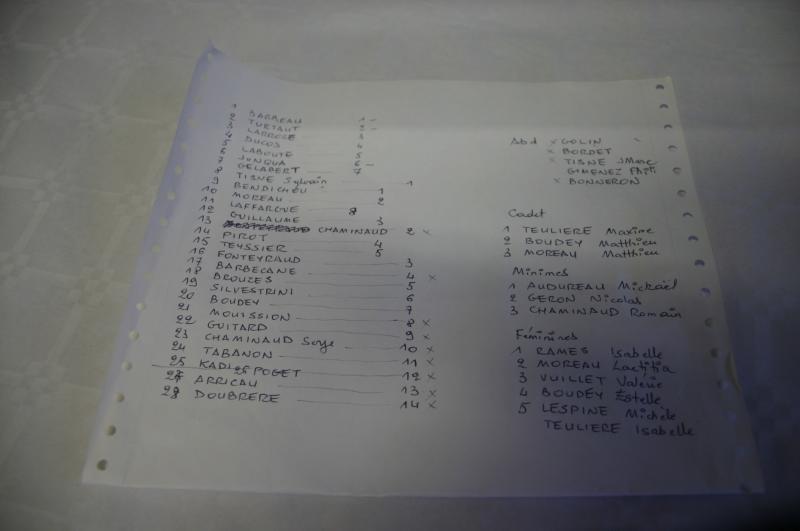 1 BARBEAU 1 -
2 TUETAUT 2 -
3 LARROZE 3
4 DUCOS 4
5 LABOUTE 5
6 JUNQUA 6 -
7 GELABERT 7
8 TISNE Sylvain 1
9 BENDICHOU 1
10 MOREAU 2
11 LAFFARGUE 8
12 GUILLAUME 3
13 CHAMINAUD 2 x
14 PIROT 4
15 TEYSSIER 5
16 FONTEYRAUD 3
17 BARBECANE 4 x
18 BROUZES 5
19 SILVESTRINI 6
20 BOUDEY 7
21 MOUISSION 8 x
22 GUITARD 9 x
23 CHAMINAUD Serge 10 x
24 TABANON 11 x
25 KADI POGET 12 x
27 ARRICAU 13 x
28 DOUBRERE 14 x
Abd x GOLIN
x BORDET
x TISNE JMarc
GIMENEZ
x BONNERON
Cadet
1 TEULIERE Maxime
2 BOUDEY Matthieu
3 MOREAU Matthieu
Minimes
1 AUDUREAU Mickaël
2 GERON Nicolas
3 CHAMINAUD Romain
Féminines
1 RAMES Isabelle
2 MOREAU Laetitia
3 VUILLET Valérie
4 BOUDEY Estelle
5 LESPINE Michèle
TEULIERE Isabelle